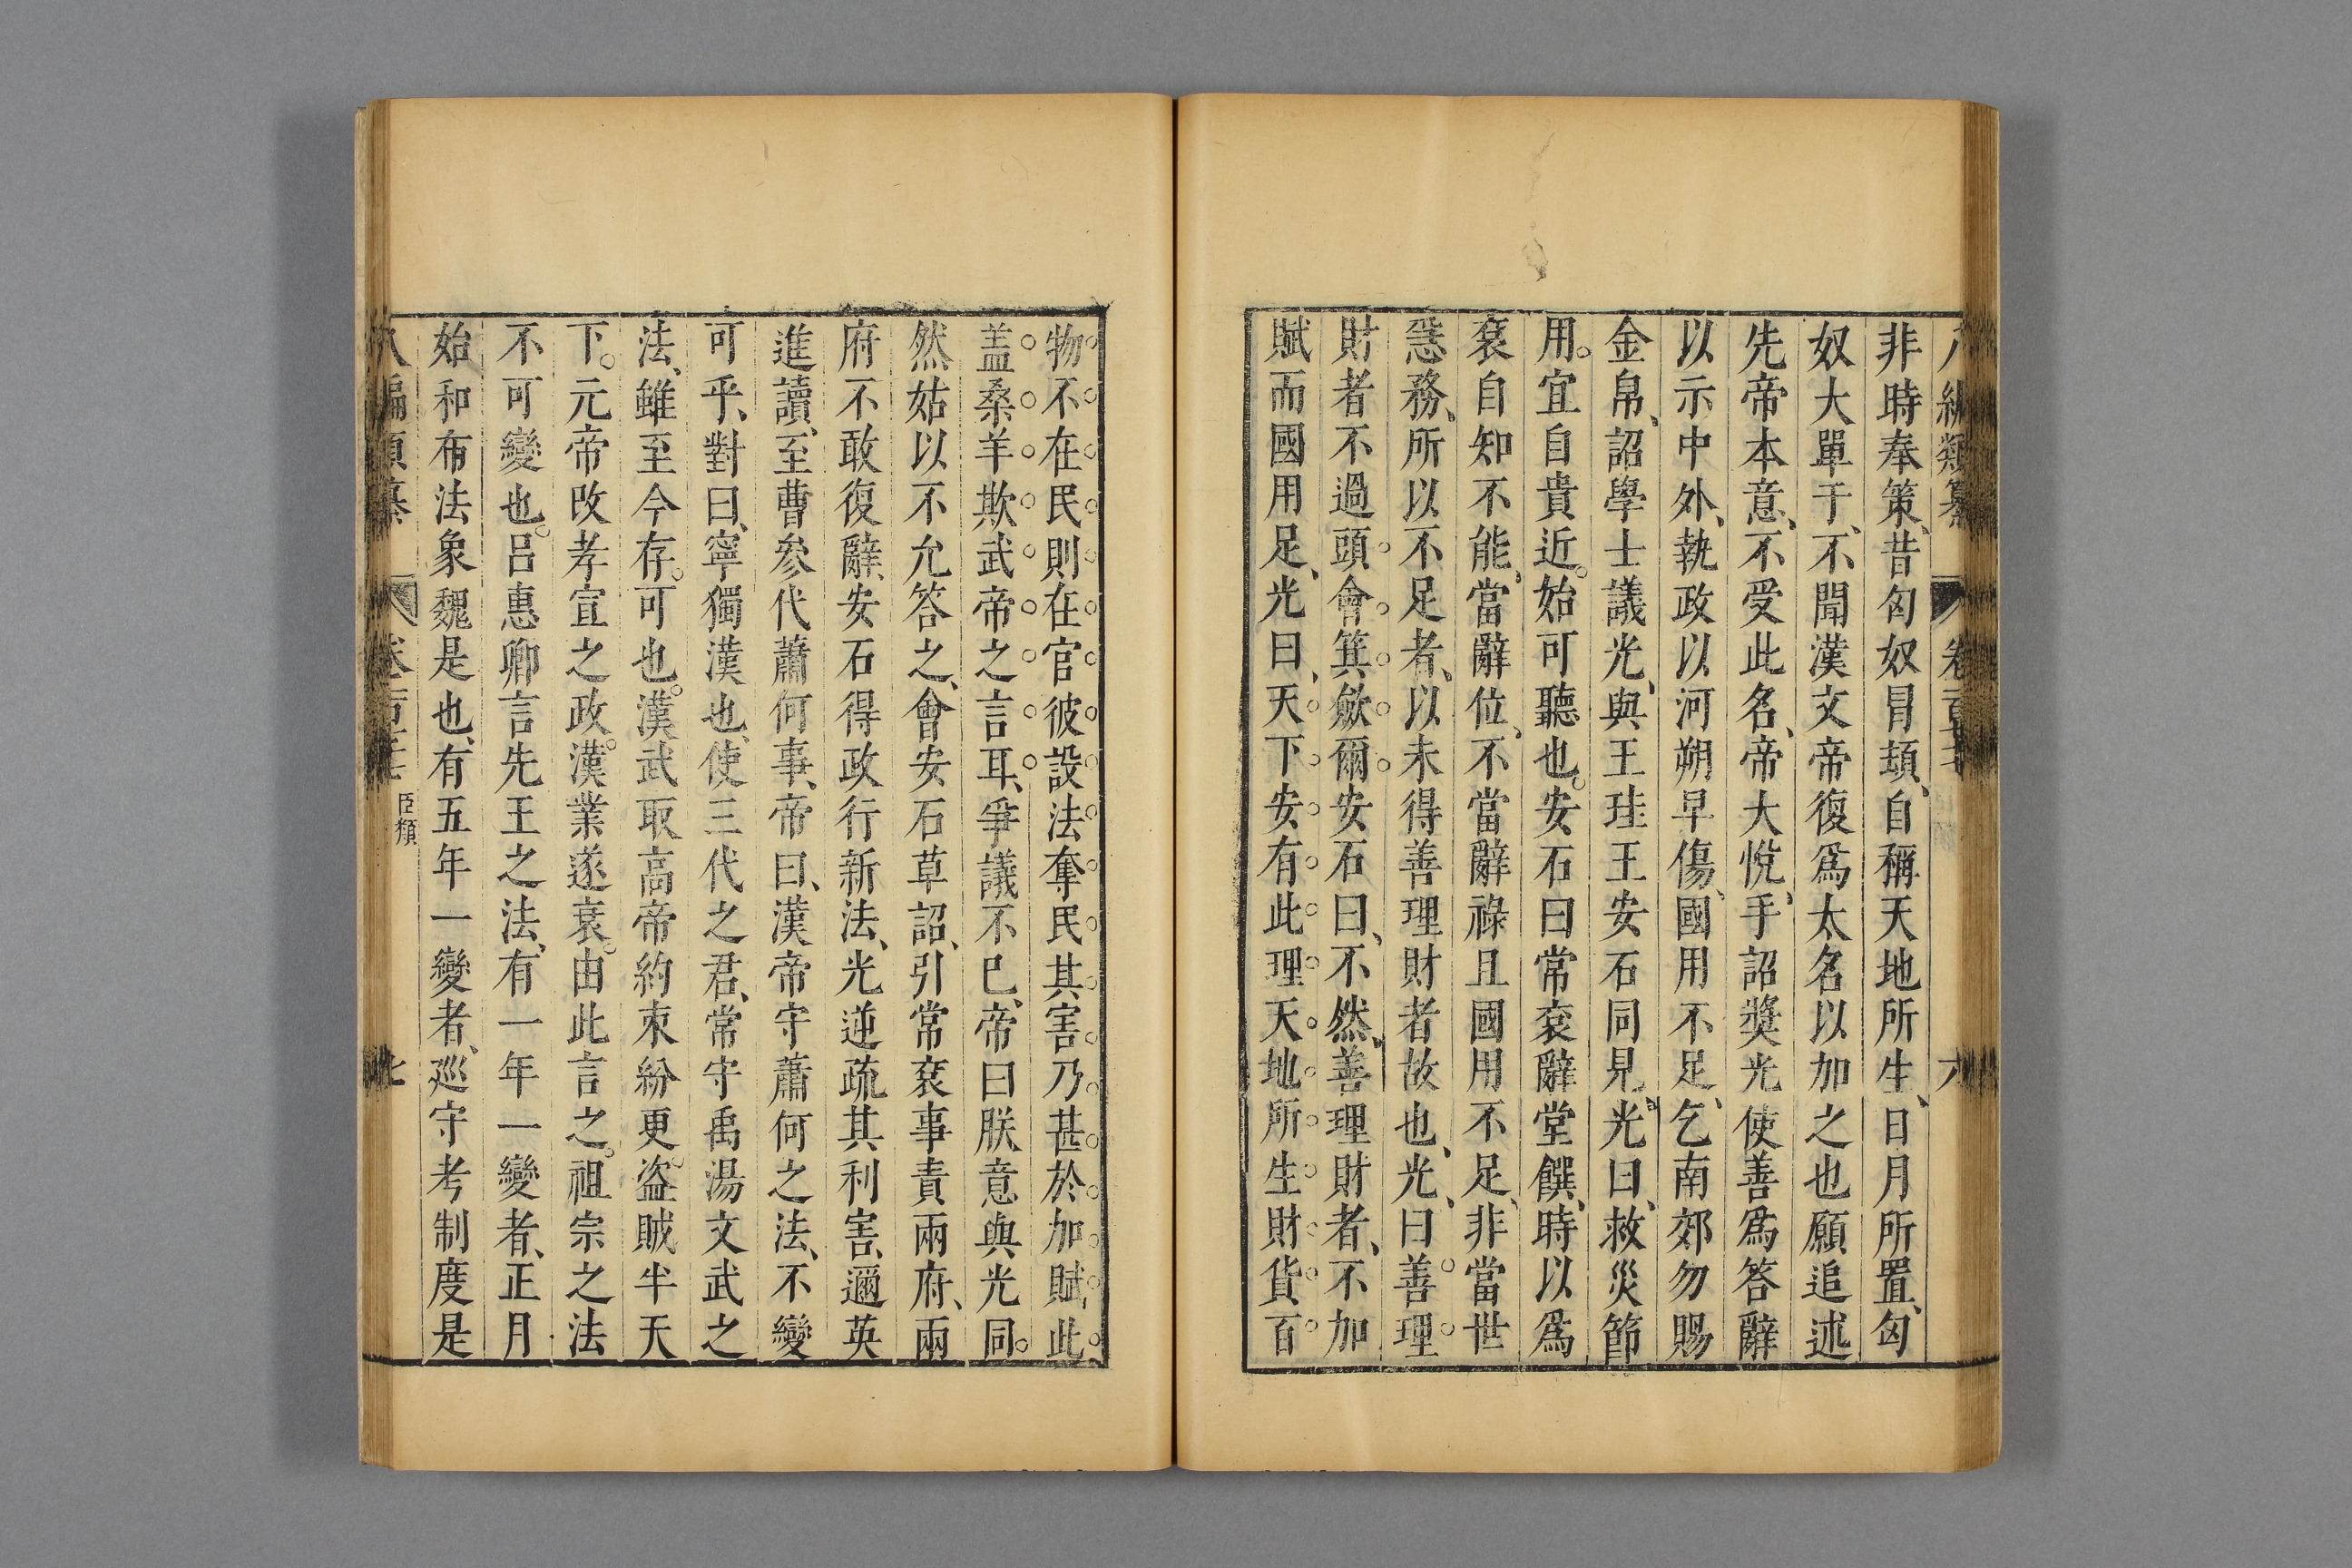 非時奉策、昔匈奴冒頓、自稱天地所生、日月所置、匈
奴大單于、不聞漢文帝復爲太名以加之也願追述
先帝本意、不受此名、帝大悅、手詔獎光使善爲答辭
以示中外、執政以河朔旱傷、國用不足、乞南郊勿賜
金帛、詔學士議光、與王珪王安石同見、光曰、救災節
用。宜自貴近。始可聽也。安石曰常袞辭堂饌、時以爲
袞自知不能、當辭位、不當辭祿且國用不足、非當世
急務、所以不足者、以未得善理財者故也、光、曰善理
財者不過頭會箕歛爾安石曰、不然、善理財者、不加
賦而國用足、光曰、天下安有此理天地所生財貨百
物不在民則在官彼設法奪民其害乃甚於加賦此
盖桑羊欺武帝之言耳、爭議不已、帝曰朕意與光同。
然姑以不允答之、會安石草詔、引常袞事責兩府、兩
府不敢復辭、安石得政行新法、光逆疏其利害、邇英
進讀、至曹參代蕭何事、帝曰、漢帝守蕭何之法、不變
可乎、對曰、寧獨漢也、使三代之君、常守禹湯文武之
法、雖至今存。可也。漢武取高帝約束紛更。盜賊半天
下。元帝改孝宣之政。漢業遂衰。由此言之。祖宗之法
不可變也。呂惠卿言先王之法、有一年一變者、正月
始和布法象魏是也、有五年一變者、巡守考制度是
臣類